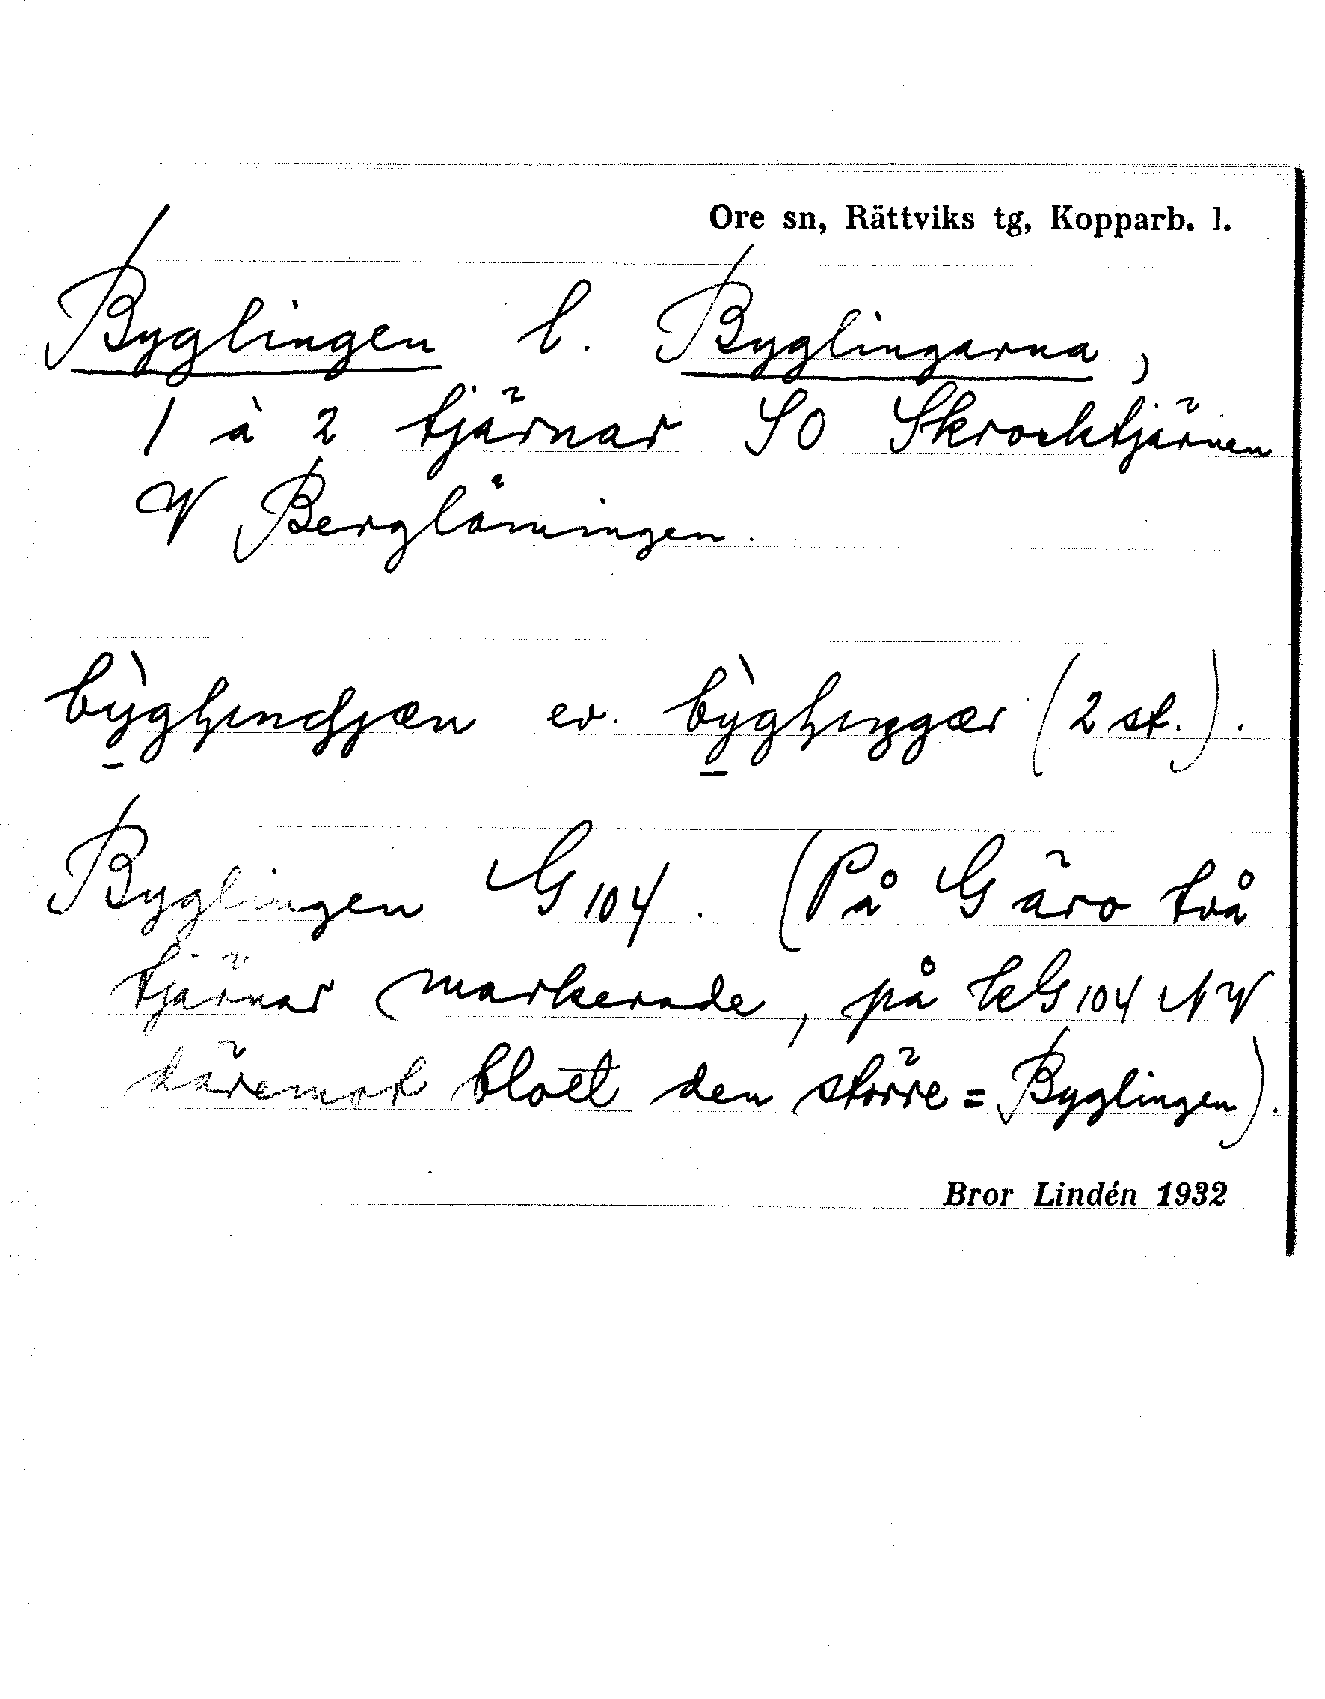 Ore sn, Rättviks tg, Kopparb. l.
Byglingen l. Byglingarna,
1 à 2 tjärnar SO Skrocktjärnen
V Berglöningen.
ev. (2 st.).
Byglingen G 104. (På G äro två
tjärnar markerade, på kG 104 NV
däremot blott den större = Byglingen).
Bror Lindén 1932